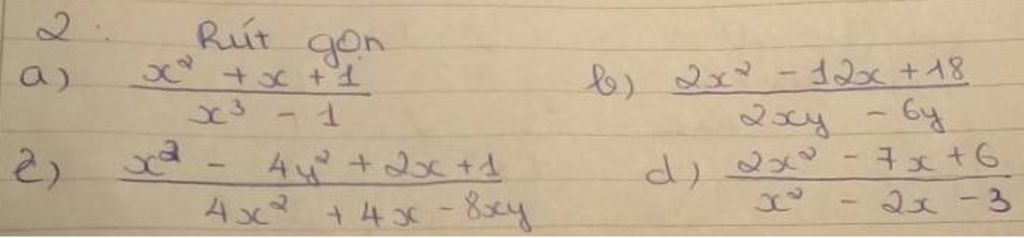 2. Rút gọn
a) \frac{x² + x + 1}{x³ - 1} b) \frac{2x² - 12x + 18}{2xy - 6y}
c) \frac{x² - 4y² + 2x + 1}{4x² + 4x - 8xy} d) \frac{2x² - 7x + 6}{x² - 2x - 3}